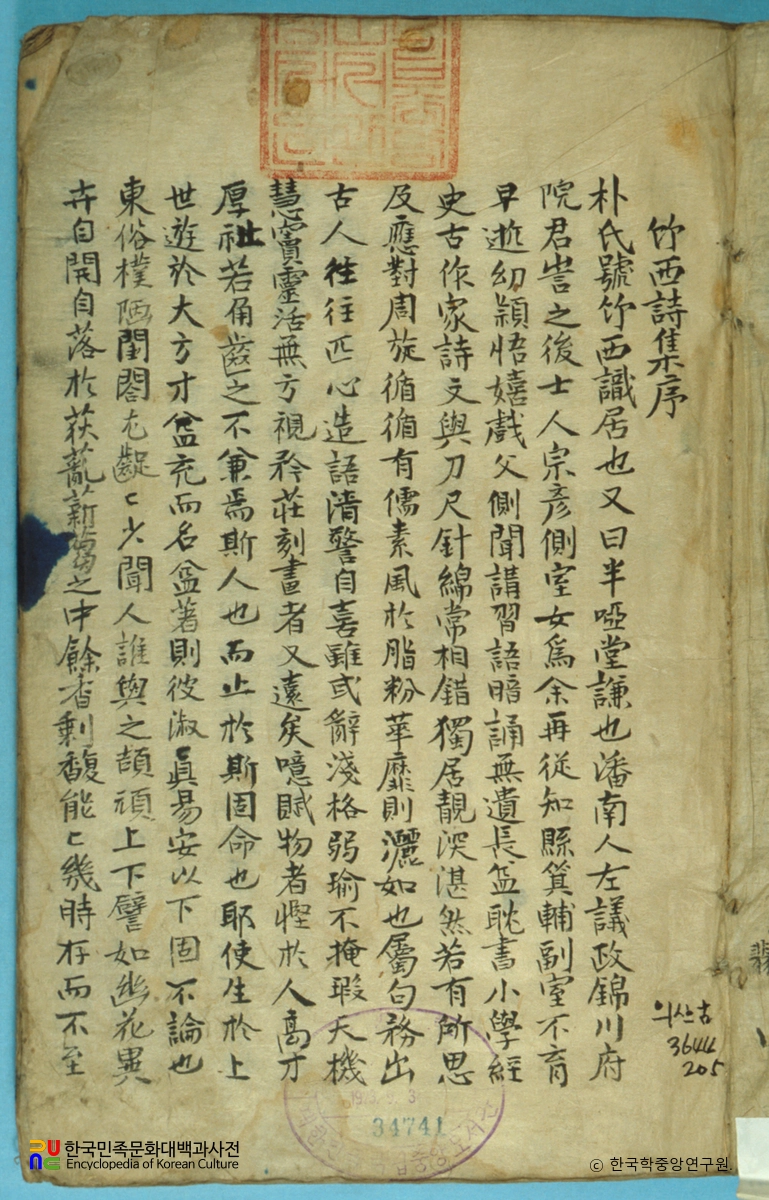 竹西詩集序
朴氏號竹西識居也又曰半啞堂謙也潘南人左議政錦川府
院君訔之後士人宗彦側室女爲余再從知縣箕輔副室不育
早逝幼穎悟嬉戲父側聞講習語暗誦無遺長益耽書小學經
史古作家詩文與刀尺針綿常相錯獨居靚深湛然若有所思
及應對周旋循循有儒素風於脂粉華靡則灑如也屬句務出
古人徃往匹心造語清警自喜雖或辭淺格弱瑜不掩瑕天機
慧竇靈活無方視矜莊刻畫者又遠矣噫賦物者慳於人高才
厚祉若角齒之不兼焉斯人也而止於斯固命也耶使生於上
世遊於大方才益充而名益著則彼淑眞易安以下固不論也
東俗樸陋閨閤尤齪〻少聞人誰與之頡頏上下譬如幽花異
卉自開自落於荻之中餘香剩馥能〻幾時存而不至
의산古
3644
205
34741
한국민족문화대백과사전
Encyclopedia of Korean Culture
ⓒ 한국학중앙연구원